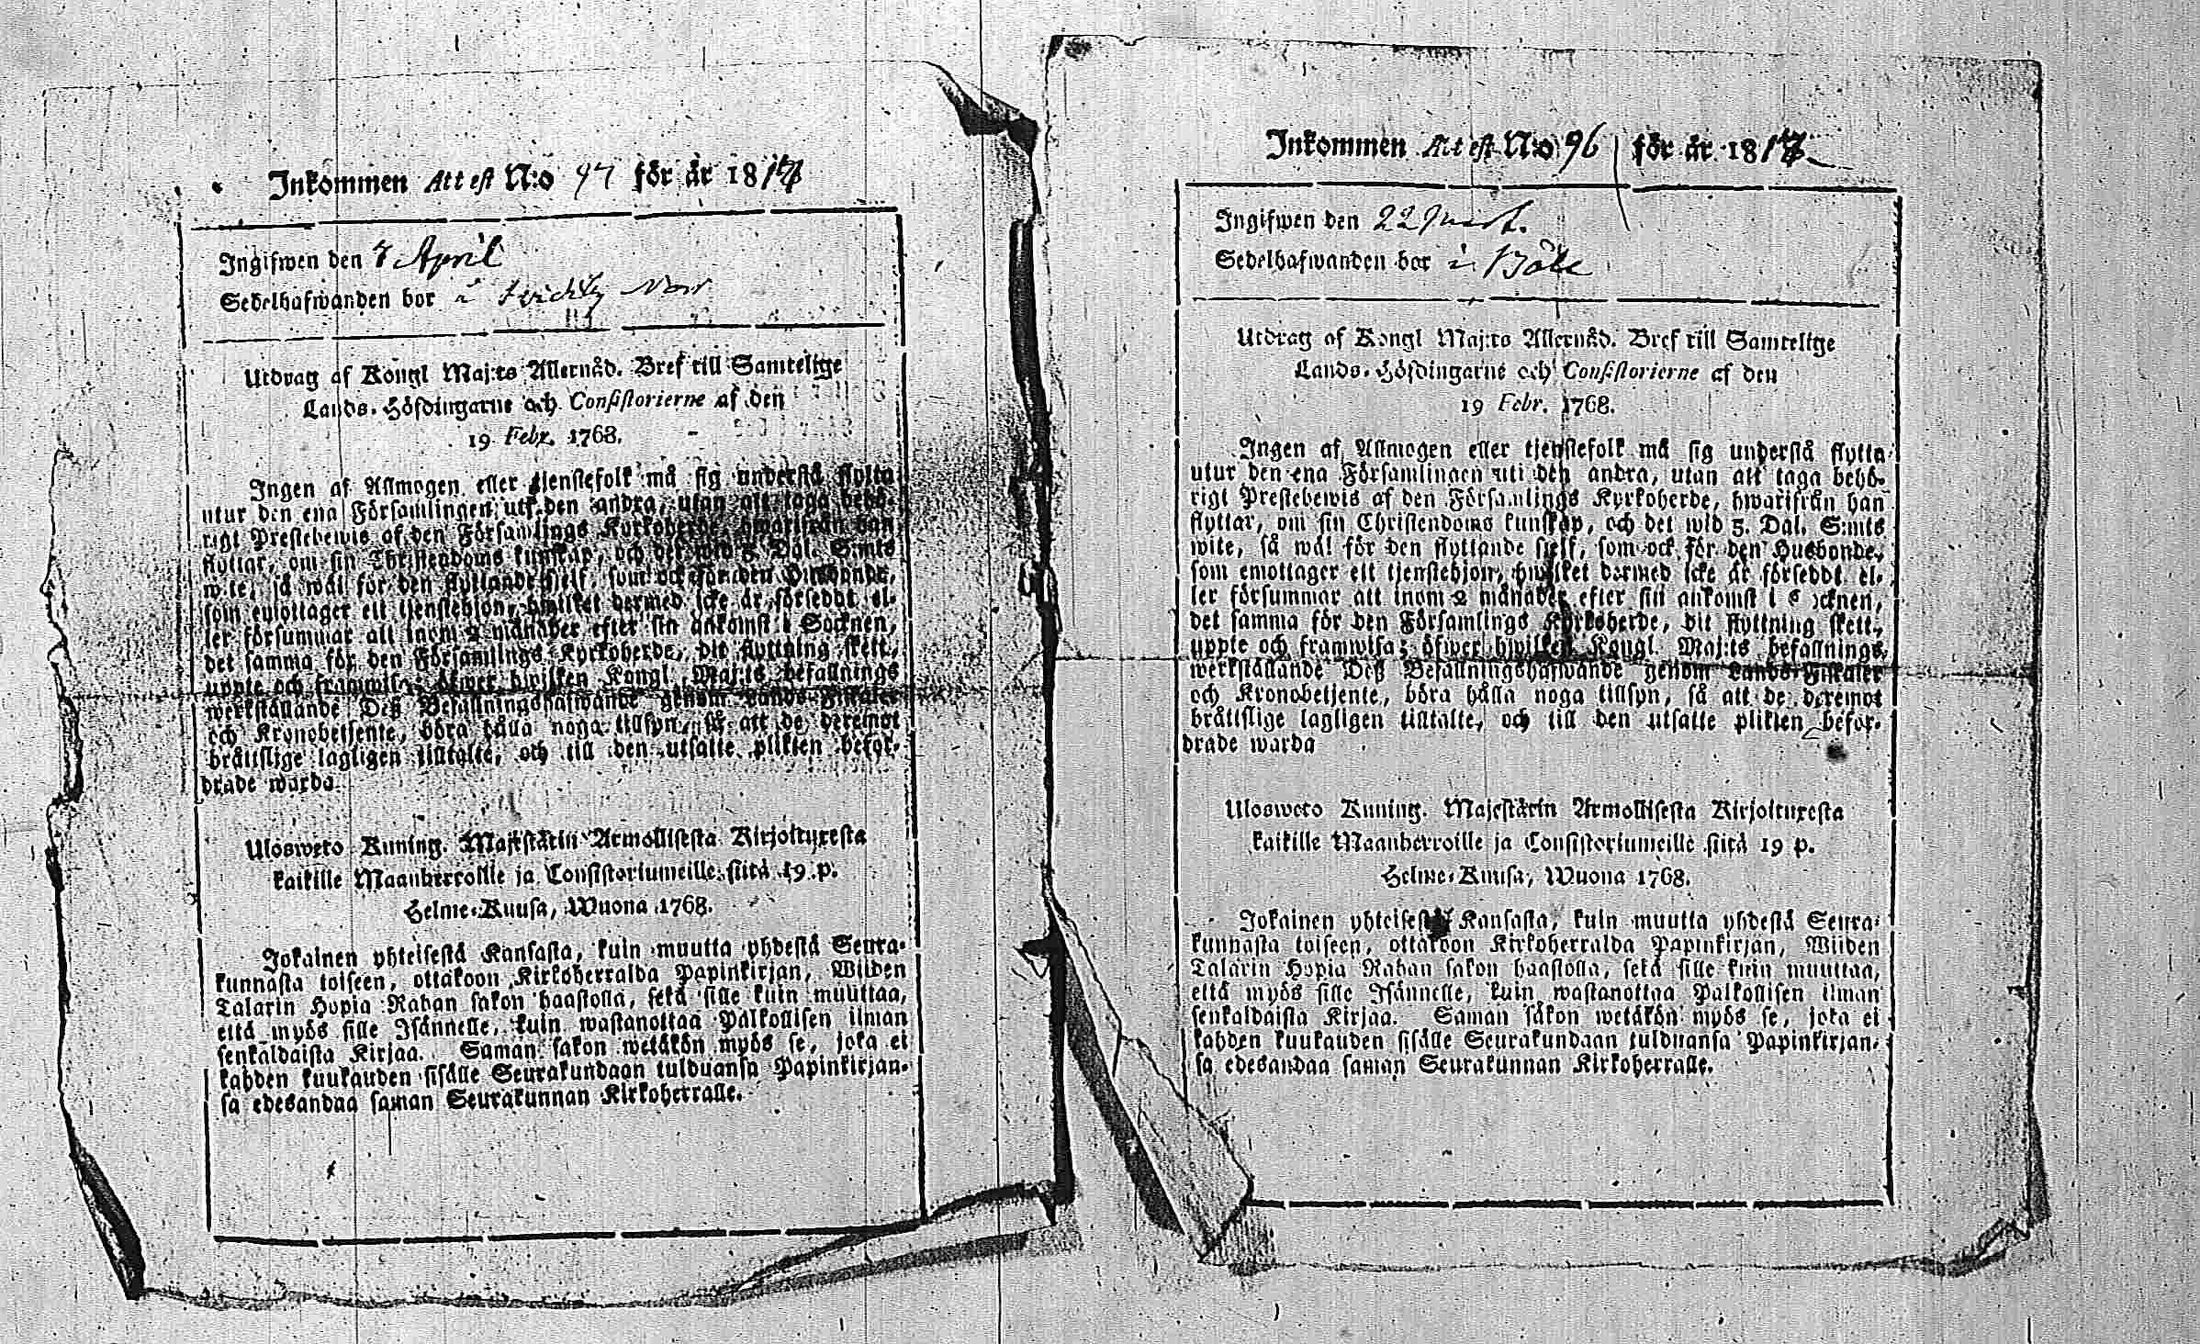 Inkommen Attest N:o 97 för år 1817
Ingifwen den 7 April
Sedelhafwanden bor i
Utdrag af Kongl Maj:ts Allernåd. Bref till Samtelige
Lands-Höfdingarne och Consistorierne af den
19 Febr. 1768.
Ingen af Allmogen eller tjenstefolk må sig understå flytta
utur den ena Församlingen uti den andra, utan att taga behö-
rigt Prestebewis af den Församlings Kyrkoherde, hwarifrån han
flyttar, om sin Christendoms kunskap, och det wid 5. Dal. S:mts
wite, så wäl för den flyttande sjelf, som ock för den Husbonde,
som emottager ett tjenstehjon, hwilket dermed icke är förseddt el-
ler försummar att inom 2 månader efter sin ankomst i Socknen,
det samma för den Församlings Kyrkoherde, dit flyttning skett,
uppte och framwisa; öfwer hwilken Kongl. Maj:ts befallnings
werkställande Deß Befallningshafwande genom Lands-Fiskaler
och Kronobetjente, böra hålla noga tillsyn, så att de deremot
bråttslige lagligen tilltalte, och till den utsatte plikten befor-
drade warda
Ulosweto Kuning. Majestätin Armollisesta Kirjoituxesta
kaikille Maanherroille ja Consistoriumeille siitä 19 p.
Helme-Kuusa, Wuona 1768.
Jokainen yhteisestä Kansasta, kuin muutta yhdestä Seura-
kunnasta toiseen, ottakoon Kirkoherralda Papinkirjan, Wiiden
Talarin Hopia Rahan sakon haastolla, sekä sille kuin muuttaa,
että myös sille Isännelle, kuin wastanottaa Palkollisen ilman
senkaldaista Kirjaa. Saman sakon wetäkön myös se, joka ei
kahden kuukauden sisälle Seurakundaan tulduansa Papinkirjan-
sa edesandaa saman Seurakunnan Kirkoherralle.
Inkommen Attest N:o 96 för år 1817
Ingifwen den 22
Sedelhafwanden bor i Böle
Utdrag af Kongl Maj:ts Allernåd. Bref till Samtelige
Lands-Höfdingarne och Consistorierne af den
19 Febr. 1768.
Ingen af Allmogen eller tjenstefolk må sig understå flytta
utur den ena Församlingen uti den andra, utan att taga behö-
rigt Prestebewis af den Församlings Kyrkoherde, hwarifrån han
flyttar, om sin Christendoms kunskap, och det wid 5. Dal. S:mts
wite, så wäl för den flyttande sjelf, som ock för den Husbonde,
som emottager ett tjenstehjon, hwilket dermed icke är förseddt el-
ler försummar att inom 2 månader efter sin ankomst i Socknen,
det samma för den Församlings Kyrkoherde, dit flyttning skett,
uppte och framwisa; öfwer hwilken Kongl. Maj:ts befallnings
werkställande Deß Befallningshafwande genom Lands-Fiskaler
och Kronobetjente, böra hålla noga tillsyn, så att de deremot
bråttslige lagligen tilltalte, och till den utsatte plikten befor-
drade warda
Ulosweto Kuning. Majestätin Armollisesta Kirjoituxesta
kaikille Maanherroille ja Consistoriumeille siitä 19 p.
Helme-Kuusa, Wuona 1768.
Jokainen yhteisestä Kansasta, kuin muutta yhdestä Seura-
kunnasta toiseen, ottakoon Kirkoherralda Papinkirjan, Wiiden
Talarin Hopia Rahan sakon haastolla, sekä sille kuin muuttaa,
että myös sille Isännelle, kuin wastanottaa Palkollisen ilman
senkaldaista Kirjaa. Saman sakon wetäkön myös se, joka ei
kahden kuukauden sisälle Seurakundaan tulduansa Papinkirjan-
sa edesandaa saman Seurakunnan Kirkoherralle.